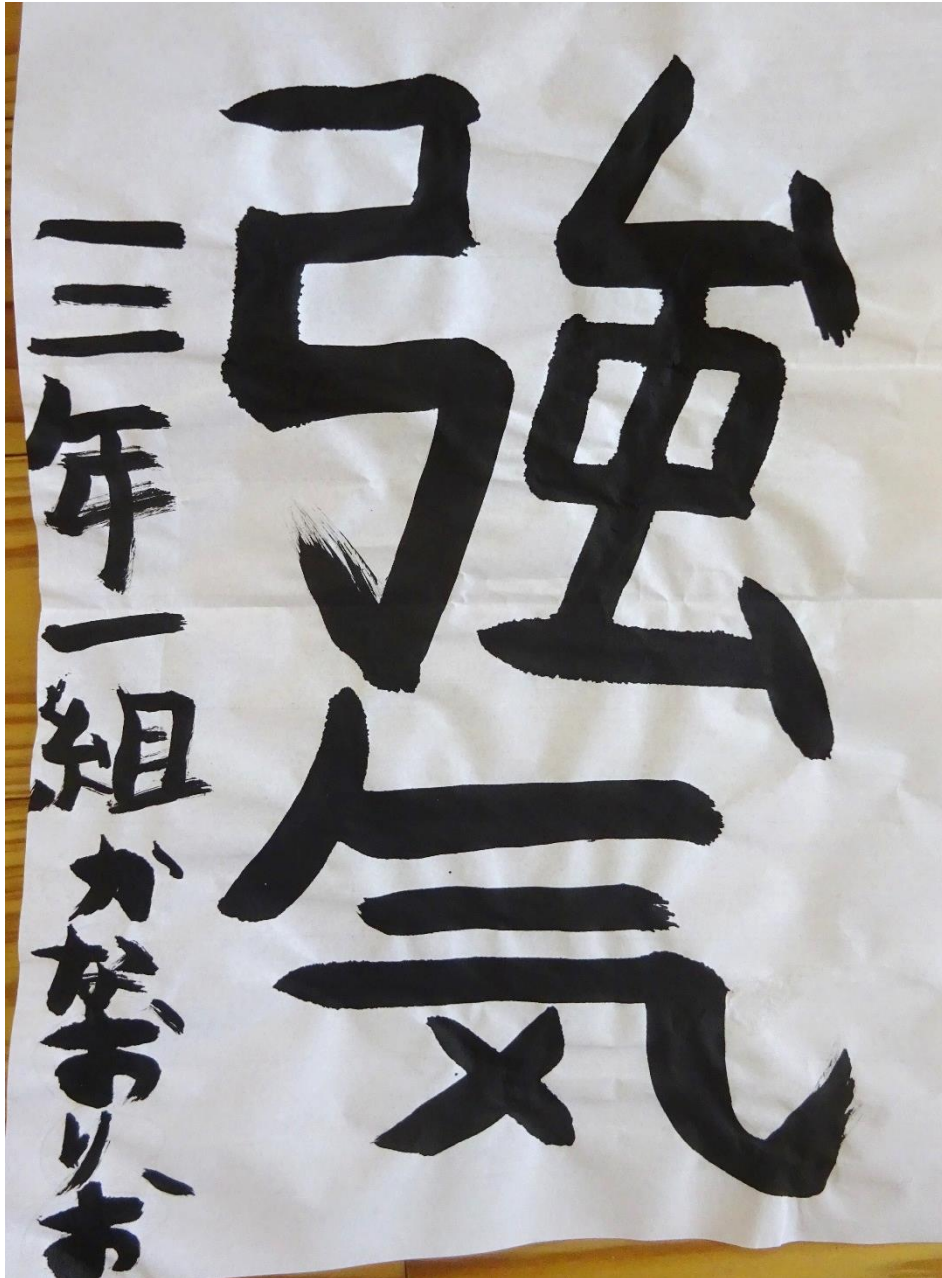 強気
三年一組かなおりお